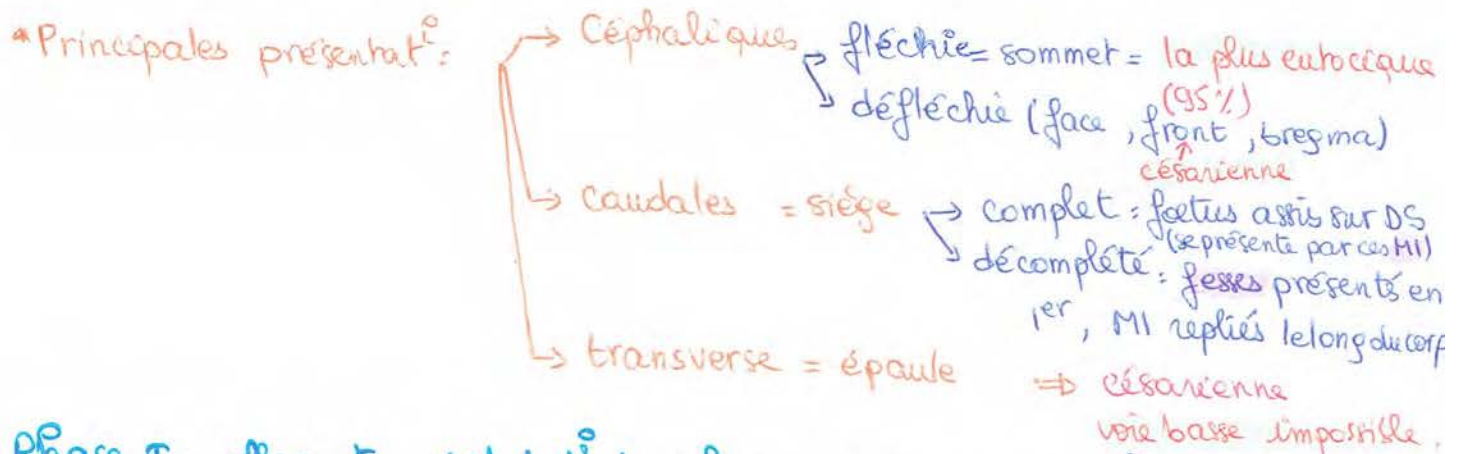 *Principales présentat°: → Céphaliques → fléchie = sommet = la plus eutocique
(95%)
→ défléchie (face, front, bregma)
↑
césarienne
→ Caudales = siège → complet : fœtus assis sur DS
(se présente par ces MI)
→ décomplété : fesses présentés en
1er, MI repliés le long du corp
→ transverse = épaule ⇒ césarienne
voie basse impossible.
Phase I